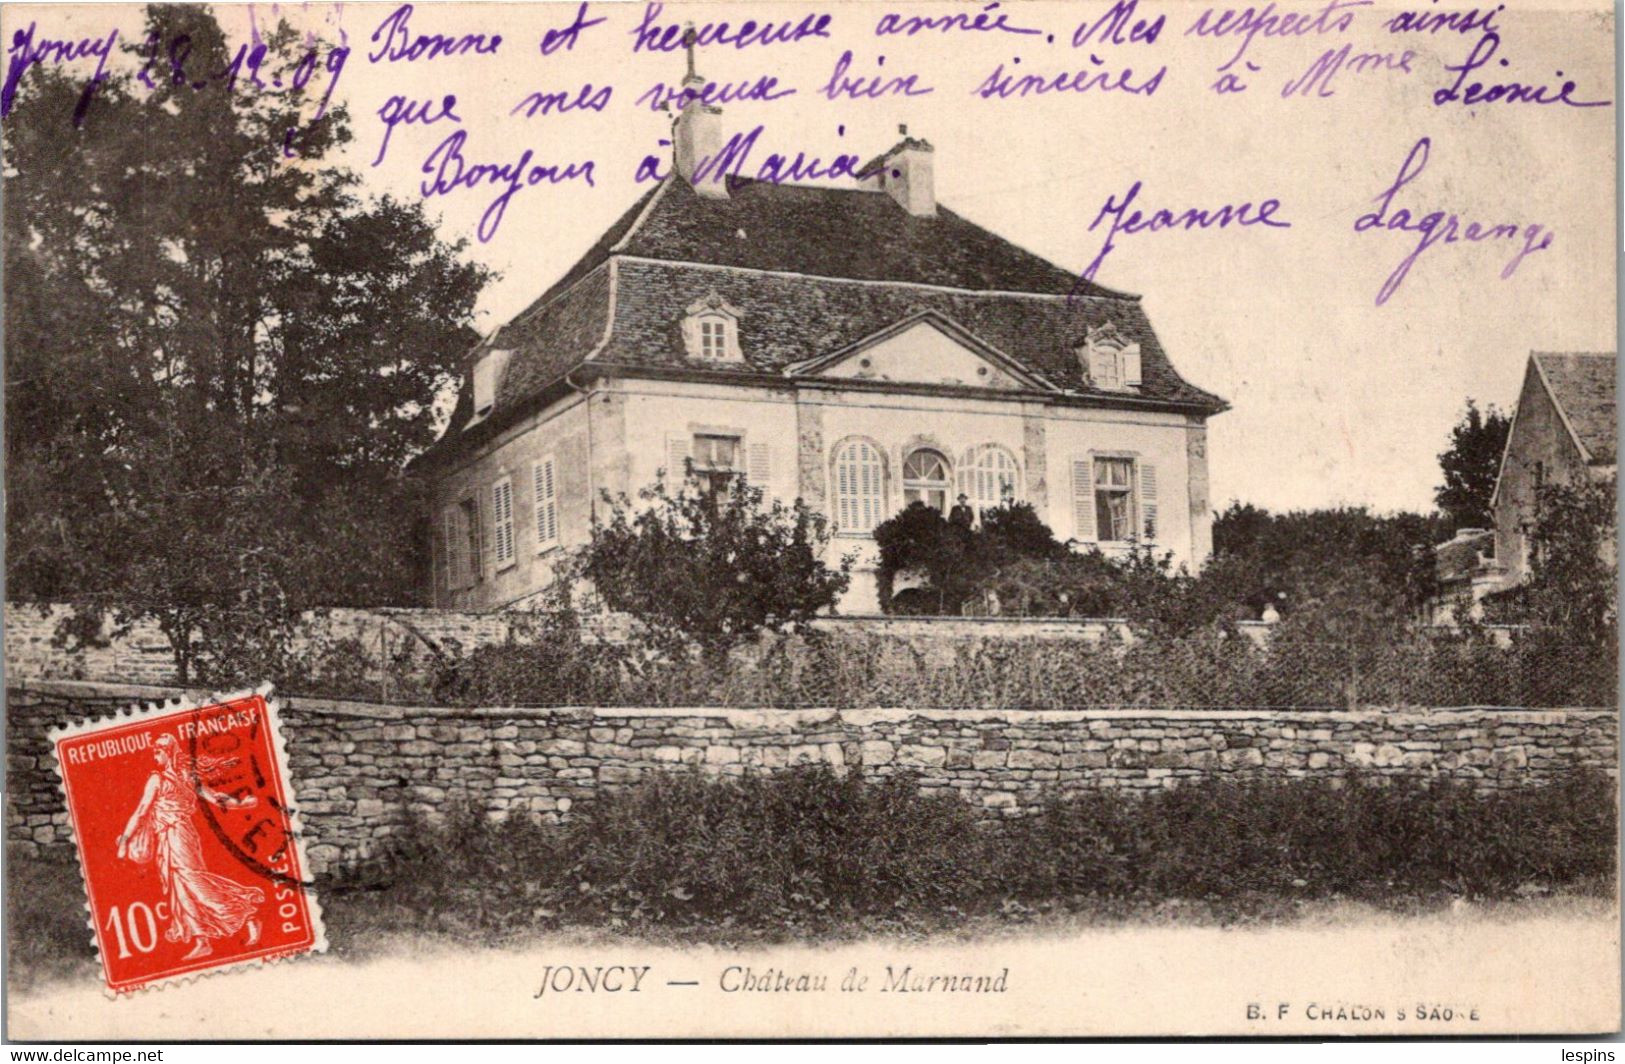 Joncy 28.12.09 Bonne et heureuse année. Mes respects ainsi
que mes voeux bien sincères à Mme Léonie
Bonjour à Maria.
Jeanne Lagrange
RÉPUBLIQUE FRANÇAISE
10c
POSTES
JONCY — Château de Marnand
B. F CHALON S SAONE
lespins